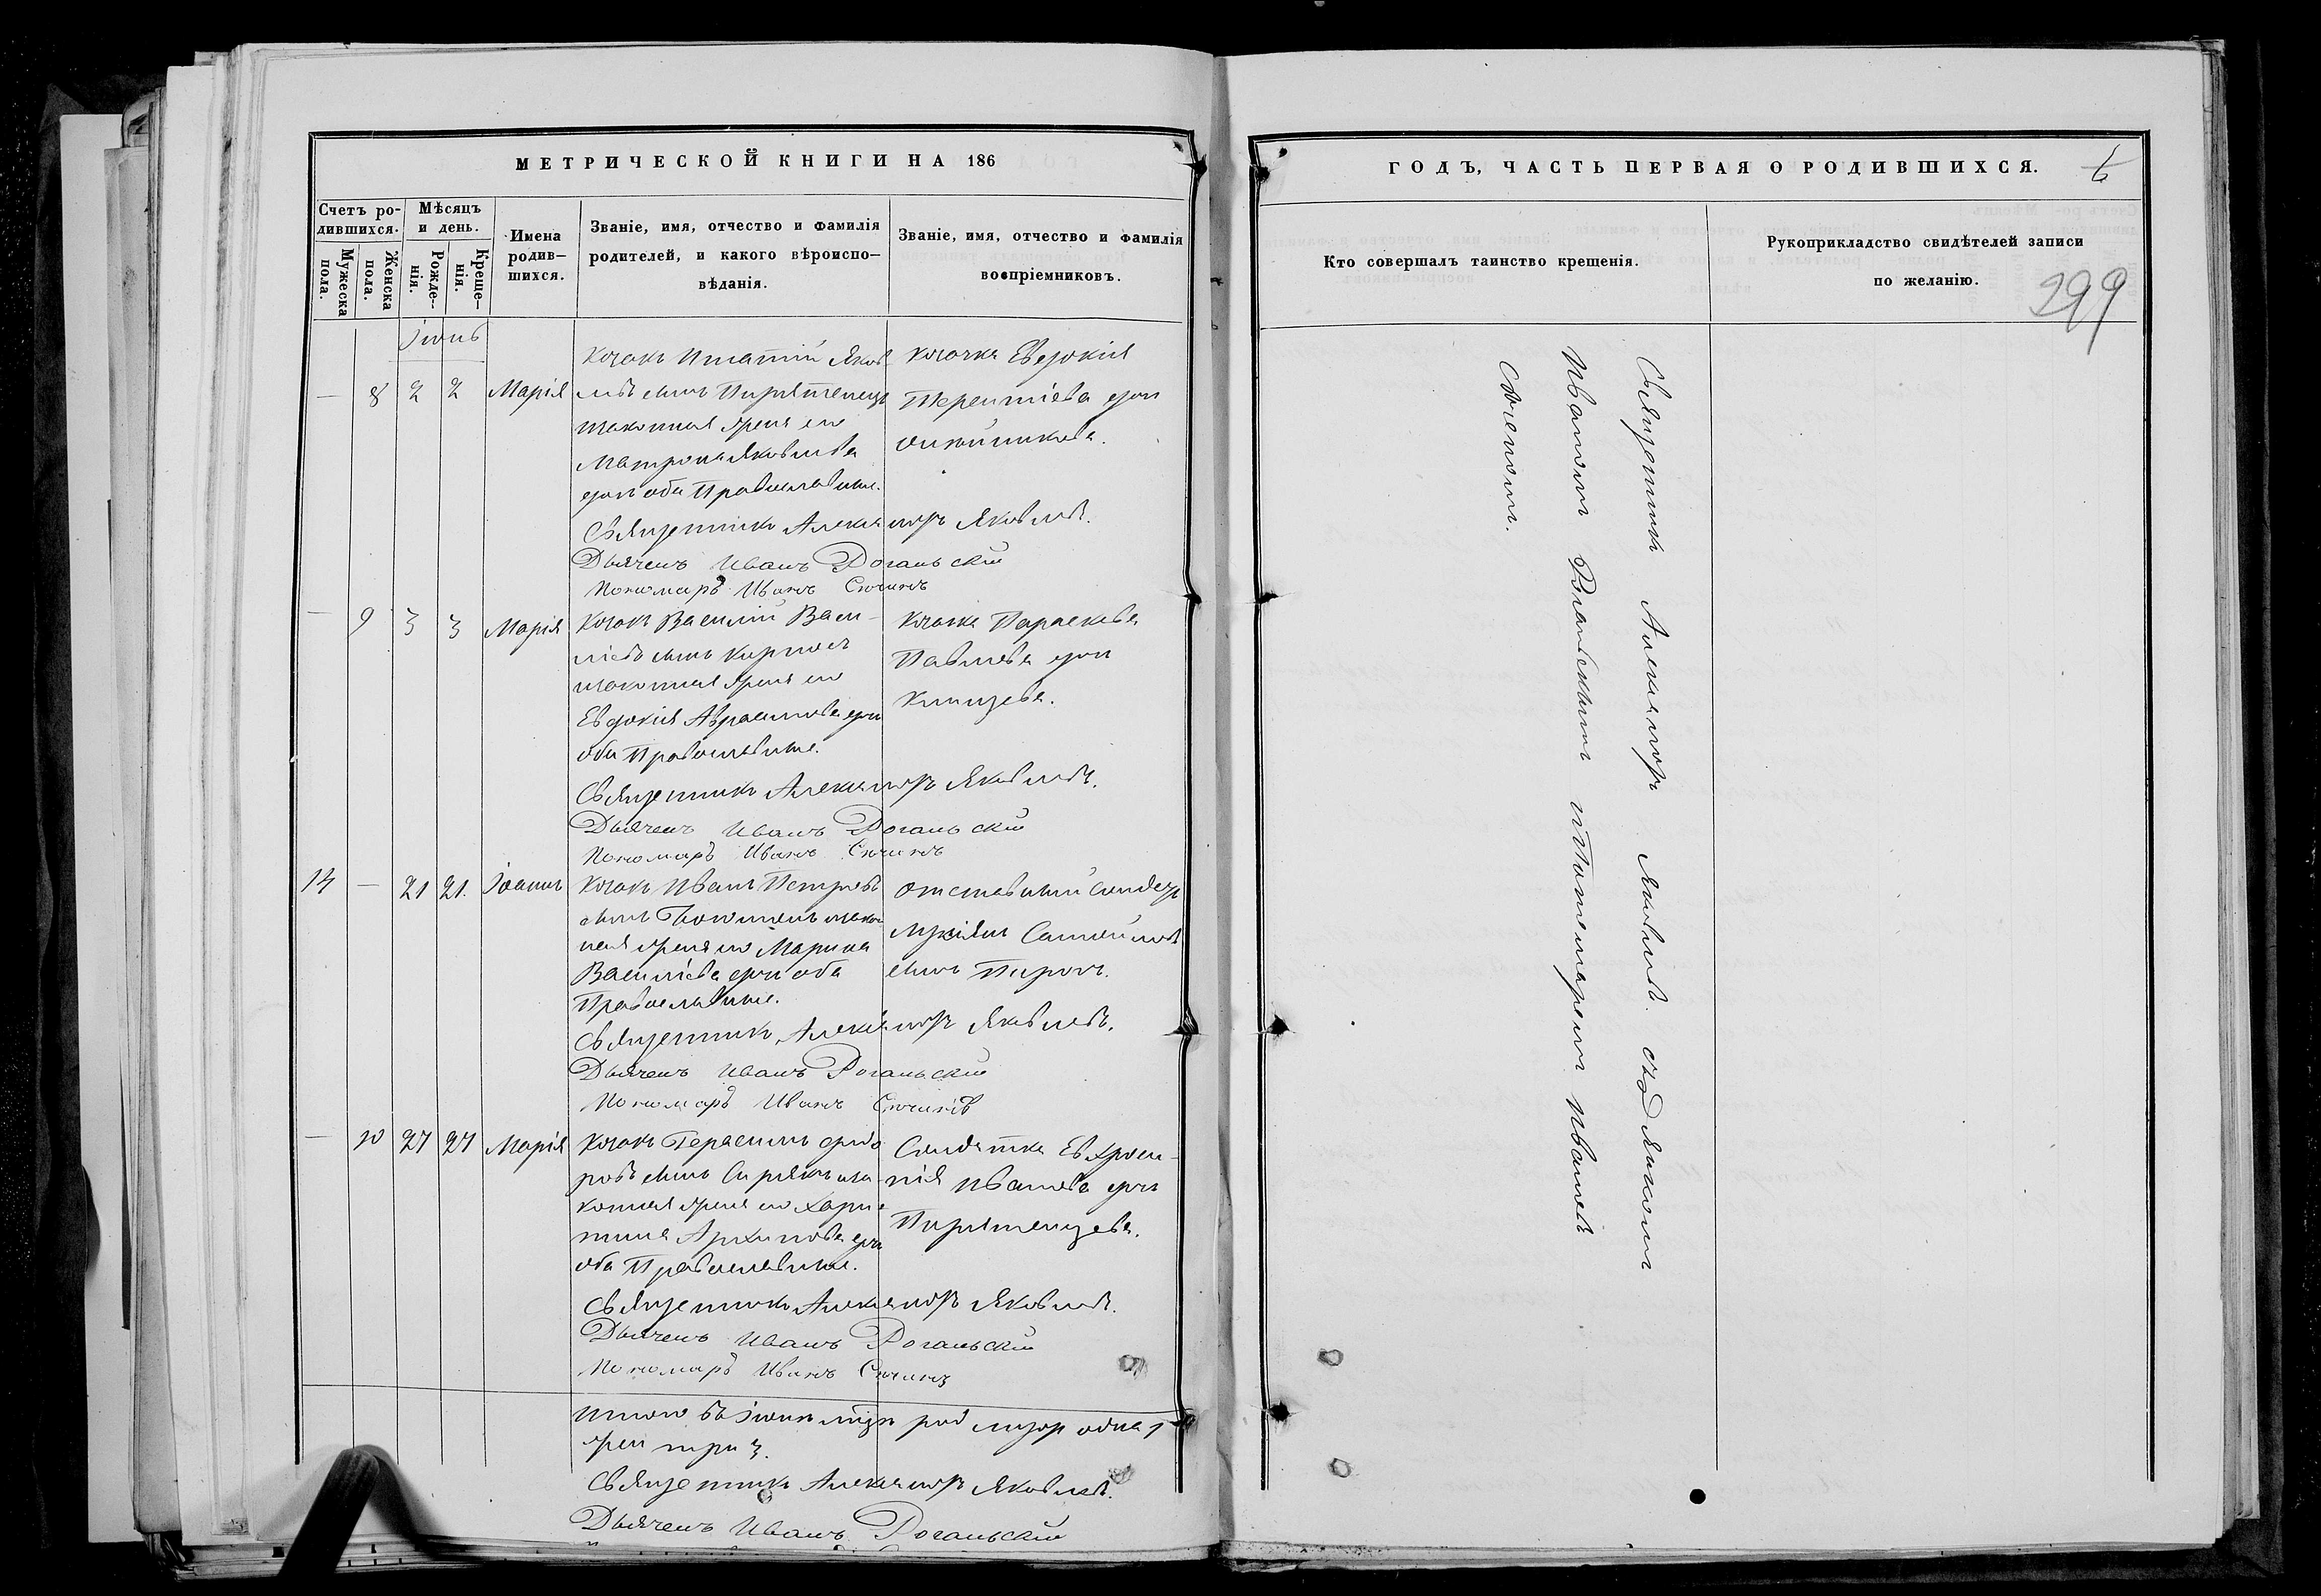 МЕТРИЧЕСКОЙ КНИГИ НА 186
Счетъ ро-
дившихся.
Мужеска
пола.
Женска
пола.
Мѣсяцъ
и день.
Рожде-
нія.
Креще-
нія.
Имена
родив-
шихся.
Званіе, имя, отчество и фамилія
родителей, и какого вѣроиспо-
вѣданія.
Званіе, имя, отчество и фамилія
воспріемниковъ.
Іюнь
— 8 2 2 Марія
Козакъ Игнатій Яков-
левъ сынъ Пирятенецъ
законная жена его
Матрона Яковлева
оба Православные.
Козачка Евдокія
Терентіева
Олійникова.
Священникъ Александръ Яковлевъ.
Дьячекъ Иванъ Рогальскій
Пономарь Иванъ
— 9 3 3 Марія
Козакъ Василій Васи-
ліевъ сынъ
законная жена его
Евдокія
оба Православные.
Козачка Параскева
Павлова
Священникъ Александръ Яковлевъ.
Дьячекъ Иванъ Рогальскій
Пономарь Иванъ
14 — 21 21. Іоаннъ
Козакъ Иванъ Петровъ
сынъ закон
ная жена его Марина
Василіева оба
Православные.
Отставный Солдатъ
Самойловъ
сынъ Пирогъ.
Священникъ Александръ Яковлевъ.
Дьячекъ Иванъ Рогальскій
Пономарь Иванъ
— 10 27 27 Марія
Козакъ Герасимъ Федо
ровъ сынъ за
конная жена его Хари
тина Архипова
оба Православные.
Солдатка Евфроси-
нія Иванова
Пирятенцева.
Священникъ Александръ Яковлевъ.
Дьячекъ Иванъ Рогальскій
Пономарь Иванъ
Итого въ Іюнѣ род одна 1
жен три 3.
Священникъ Александръ Яковлевъ.
Дьячекъ Иванъ Рогальскій
ГОДЪ, ЧАСТЬ ПЕРВАЯ О РОДИВШИХСЯ.
6
Кто совершалъ таинство крещенія.
Рукоприкладство свидѣтелей записи
по желанію.
299
Священникъ Александръ Яковлевъ. съ Дьячкомъ
Иваномъ Рогальскимъ и Пономаремъ Иваномъ